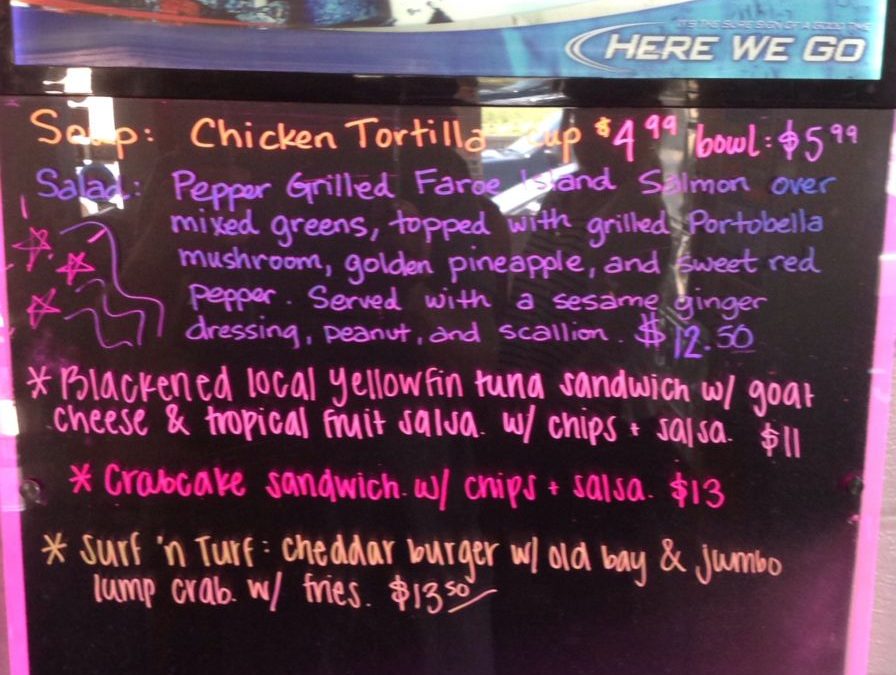 IT'S THE SURE SIGN OF A GOOD TIME
HERE WE GO
Soup: Chicken Tortilla cup $4.99 bowl: $5.99
Salad: Pepper Grilled Faroe Island Salmon over
mixed greens, topped with grilled Portobella
mushroom, golden pineapple, and sweet red
pepper. Served with a sesame ginger
dressing, peanut, and scallion. $12.50
* Blackened local yellowfin tuna sandwich w/ goat
cheese & tropical fruit salsa. w/ chips + salsa. $11
* Crabcake sandwich. w/ chips + salsa. $13
* Surf 'n Turf: cheddar burger w/ old bay & jumbo
lump crab. w/ fries. $13.50